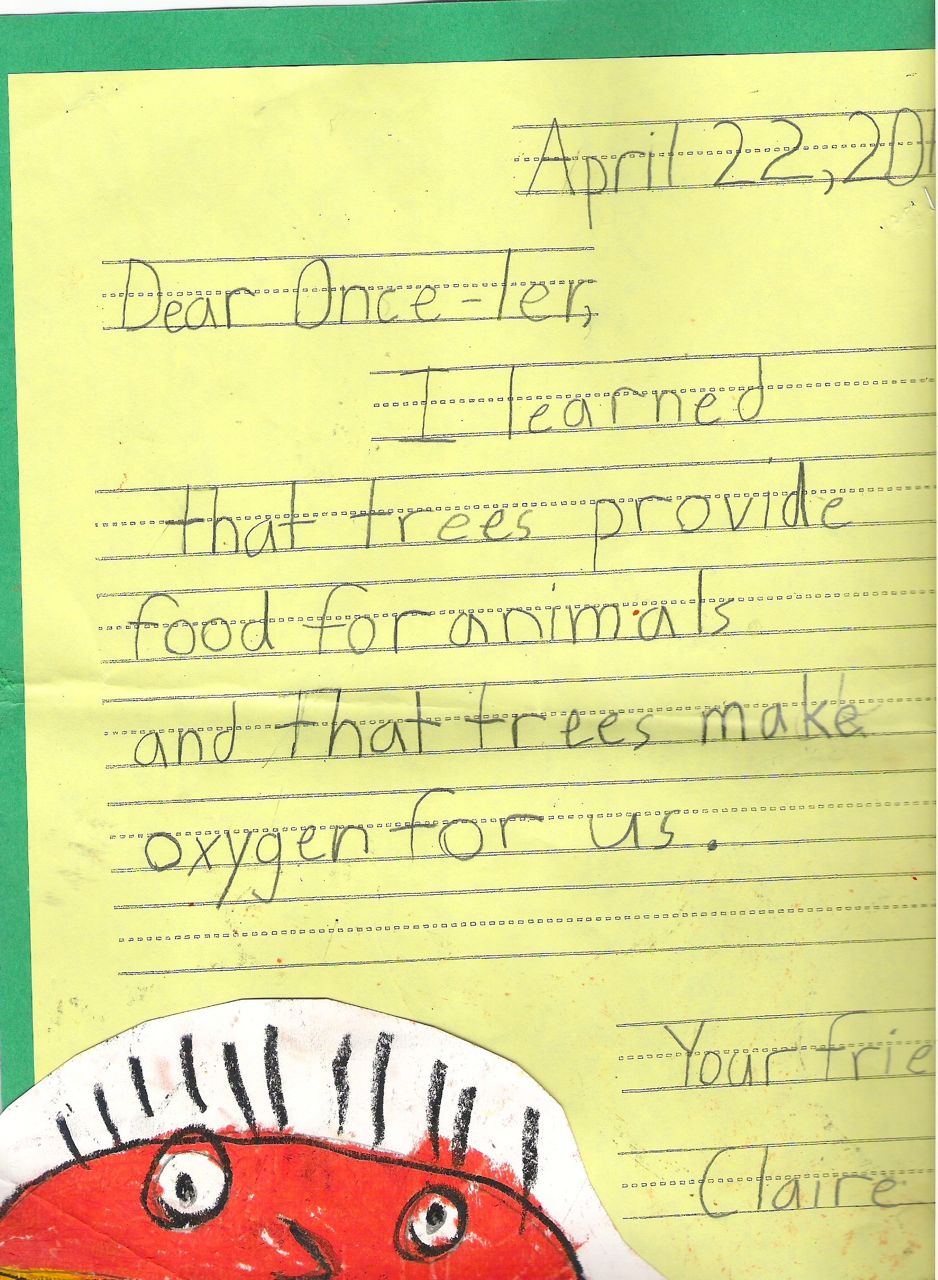 April 22, 201
Dear Once-ler,
I learned
that trees provide
food for animals
and that trees make
oxygen for us.
Your frie
Claire